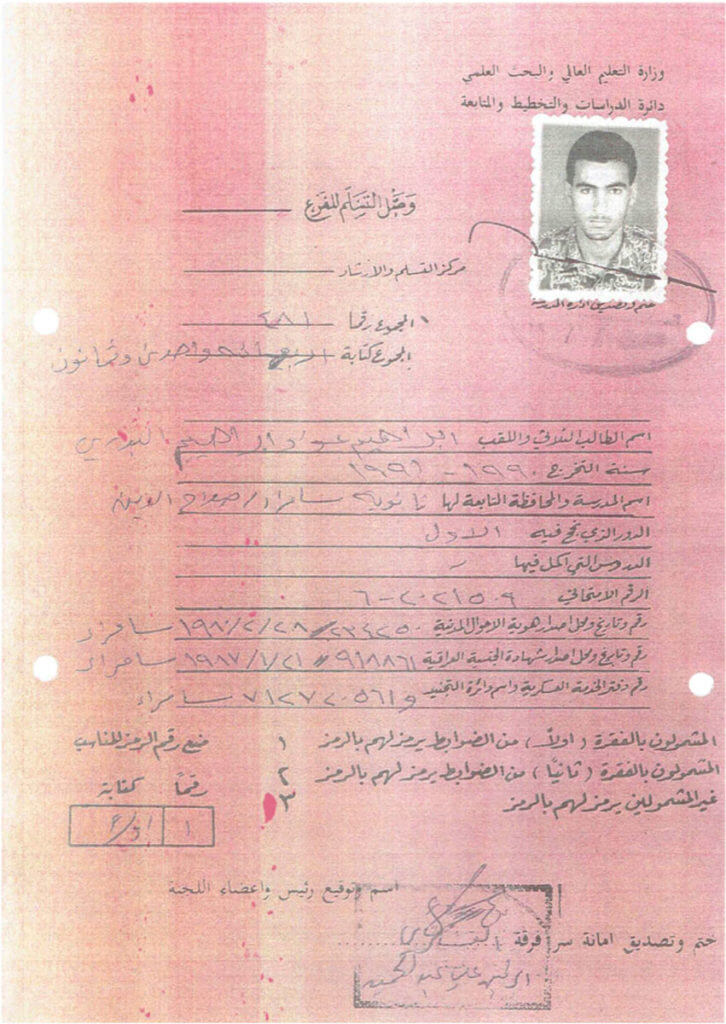 وزارة التعليم العالي والبحث العلمي
دائرة الدراسات والتخطيط والمتابعة
وصل التسلم للفرع
مركز التسلم والارشاد
ختم وتصديق ادارة المدرسة
المجموع رقما ٤٨١
المجموع كتابة اربعمائه واحدى وثمانون
اسم الطالب الثلاثي واللقب ابراهيم عواد ابراهيم البدري
سنة التخرج ١٩٩٠ - ١٩٩١
اسم المدرسة والمحافظة التابعة لها ثانوية سامراء / صلاح الدين
الدور الذي نجح فيه الاول
الدروس التي اكمل فيها -
الرقم الامتحاني
رقم وتاريخ ومحل اصدار هوية الاحوال المدنية ٢٣٤٢٥٠ ١٩٨٠/٢/٢٨ سامراء
رقم وتاريخ ومحل اصدار شهادة الجنسية العراقية ١٩٨٧/١/٢١ سامراء
رقم دفتر الخدمة العسكرية واسم دائرة التجنيد سامراء
المشمولون بالفقرة ( اولاً ) من الضوابط يرمز لهم بالرمز ١ ضع رقم الرمز المناسب
المشمولون بالفقرة ( ثانيًا ) من الضوابط يرمز لهم بالرمز ٢ رقمًا كتابة
غير المشمولين يرمز لهم بالرمز ٣
١
اسم وتوقيع رئيس واعضاء اللجنة
ختم وتصديق امانة سر فرقة